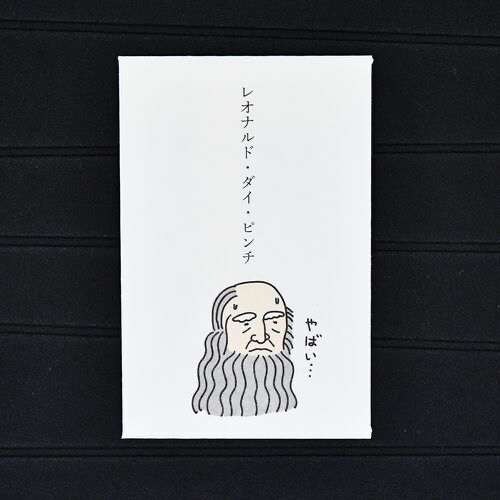 レオナルド・ダイ・ピンチ
やばい…